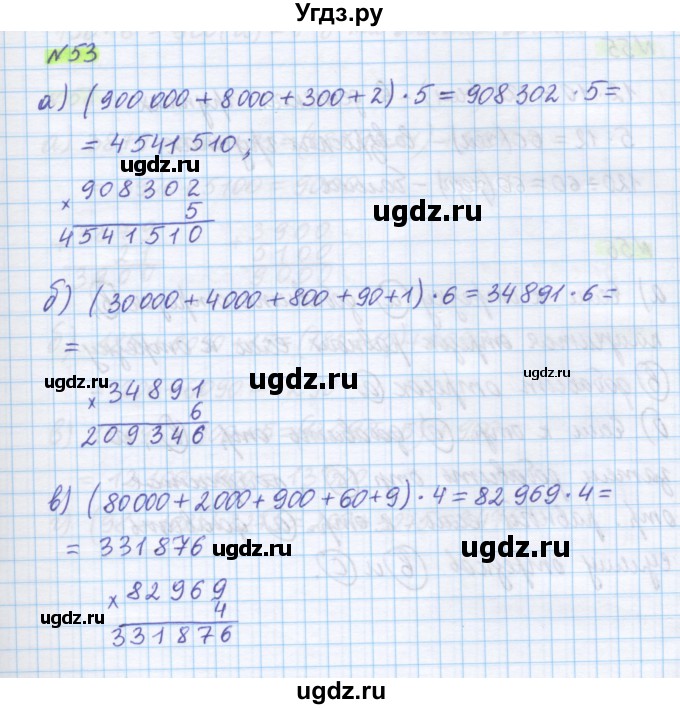 Угдз.ру
№53
а) (900 000 + 8000 + 300 + 2) · 5 = 908 302 · 5 =
= 4 541 510;
ugdz.ru
× 908302
5
ugdz.ru
4541510
ugdz.ru
б) (30 000 + 4000 + 800 + 90 + 1) · 6 = 34 891 · 6 =
=
ugdz.ru
ugdz.ru
ugdz.ru
× 34891
6
209346
в) (80 000 + 2000 + 900 + 60 + 9) · 4 = 82 969 · 4 =
= 331 876
ugdz.ru
ugdz.ru
× 82969
4
ugdz.ru
331876
ugdz.ru